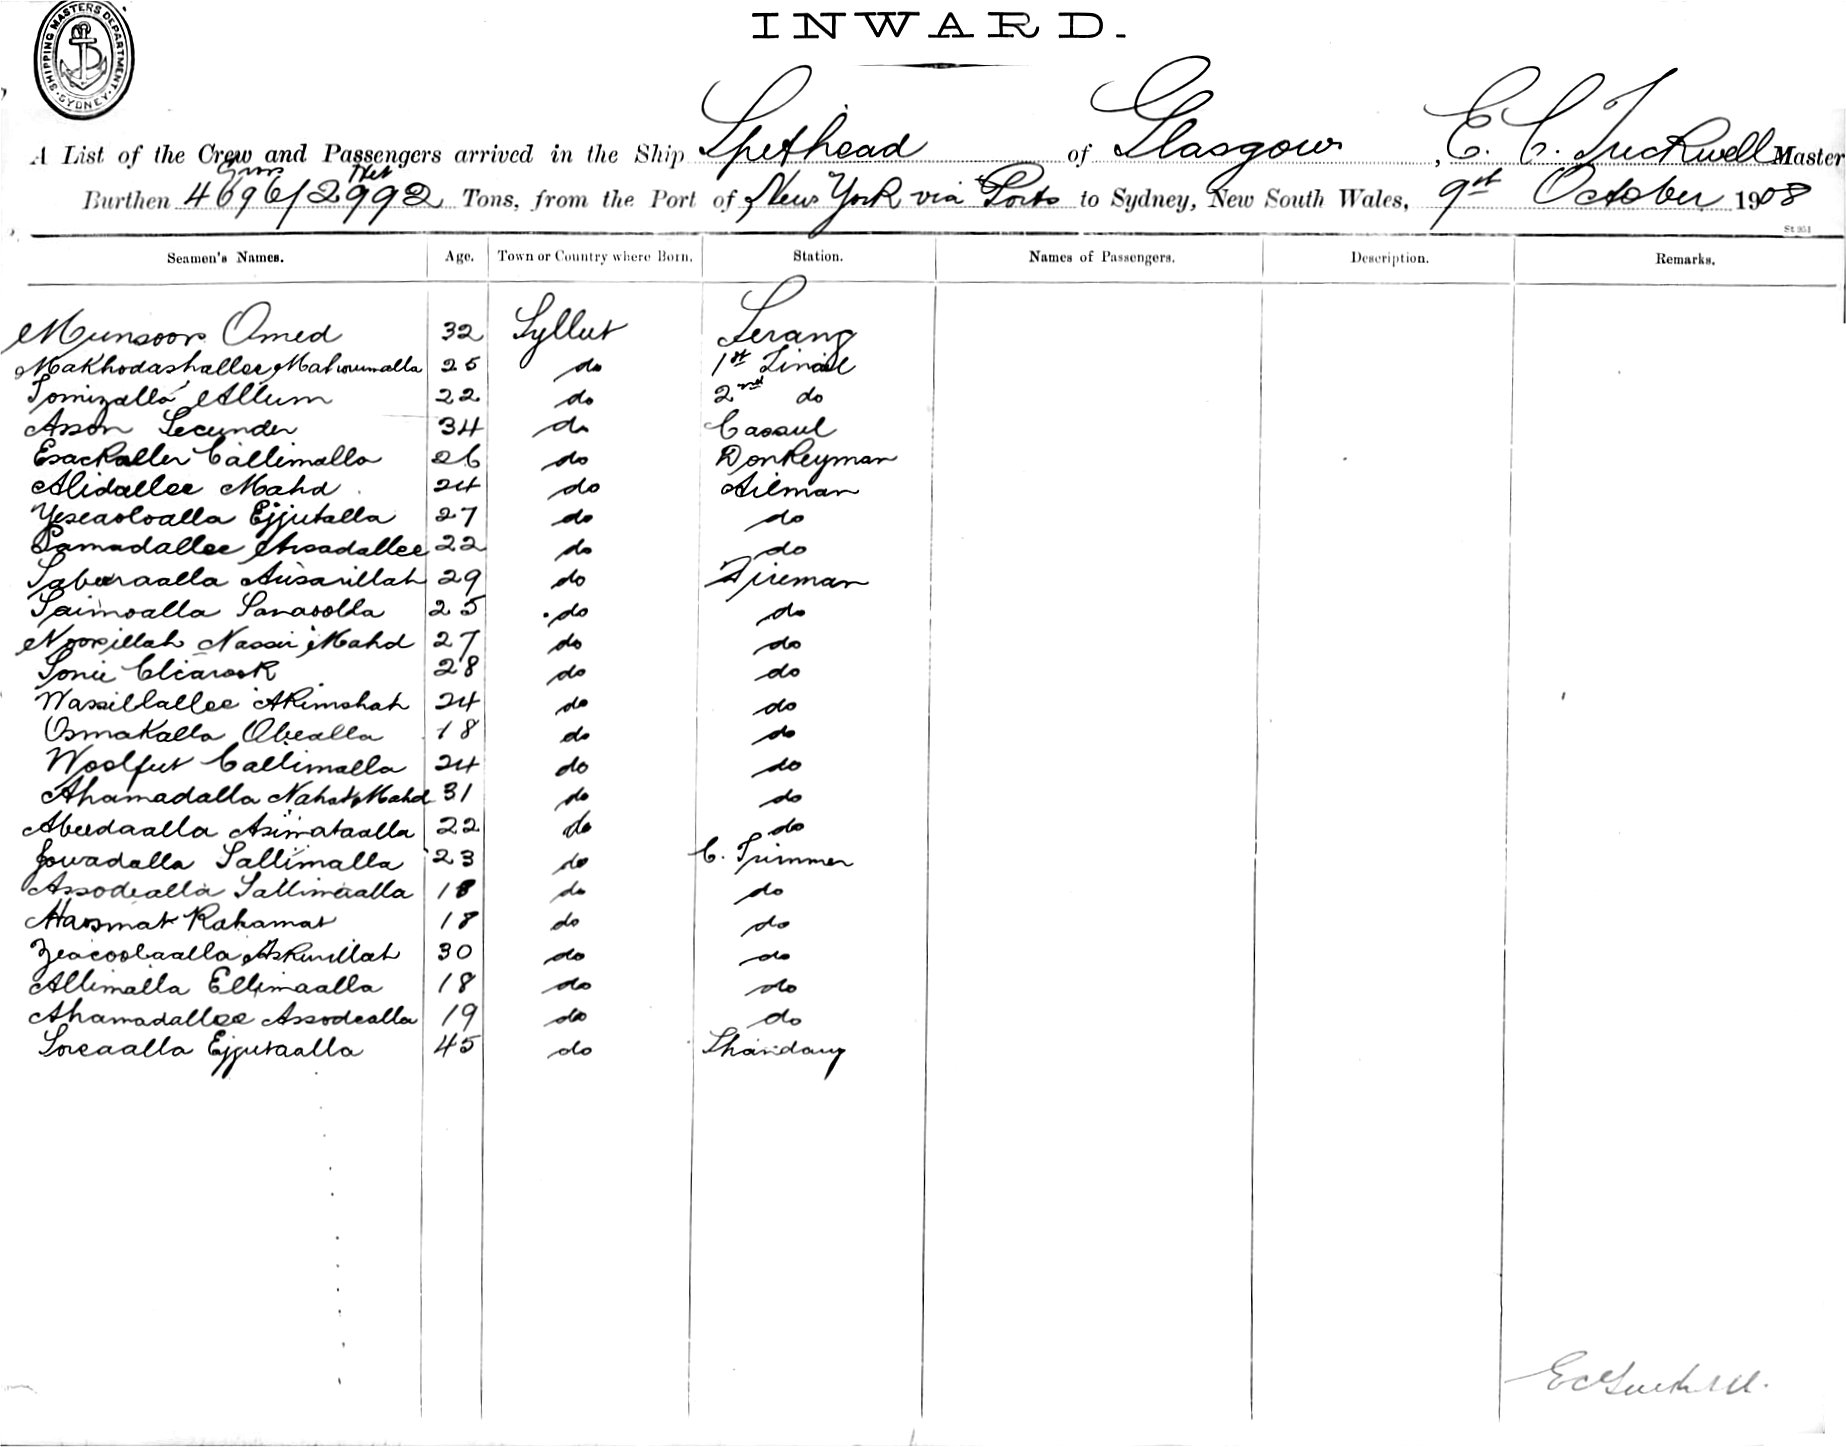 SHIPPING MASTERS DEPARTMENT · SYDNEY ·
INWARD.
A List of the Crew and Passengers arrived in the Ship Spithead of Glasgow, E. C. Tuckwell Master
Gross Net
Burthen 4696/2992 Tons, from the Port of New York via Ports to Sydney, New South Wales, 9th October 1908
St 951
Seamen's Names. Age. Town or Country where Born. Station. Names of Passengers. Description. Remarks.
Munsoor Omed 32 Syllut Serang
Makhodashallee Mahoumalla 25 do 1st Tindle
Tomizalla Allum 22 do 2nd do
Asson Secunder 34 do Cassul
Esackaller Callimalla 26 do Donkeyman
Alidallee Mahd 24 do Ailman
Yeseaoloalla Ejjutalla 27 do do
Samadallee Arsadallee 22 do do
Saburaalla Aüsarillah 29 do Fireman
Saimoalla Sanaoolla 25 do do
Noorillah Nassir Mahd 27 do do
Sonie Cliarook 28 do do
Wassillallee Akimshah 24 do do
Osmakalla Obealla 18 do do
Woolfut Callimalla 24 do do
Ahamadalla Nahat Mahd 31 do do
Abeedaalla Asimataalla 22 do do
Jowadalla Sallimalla 23 do C. Trimmer
Assodealla Sallimaalla 18 do do
Hassmat Rahamat 18 do do
Zeacoolaalla Askurillah 30 do do
Allimalla Ellimaalla 18 do do
Ahamadallee Assodealla 19 do do
Soreaalla Ejjutaalla 45 do Bhandary
E C Tuckwell.